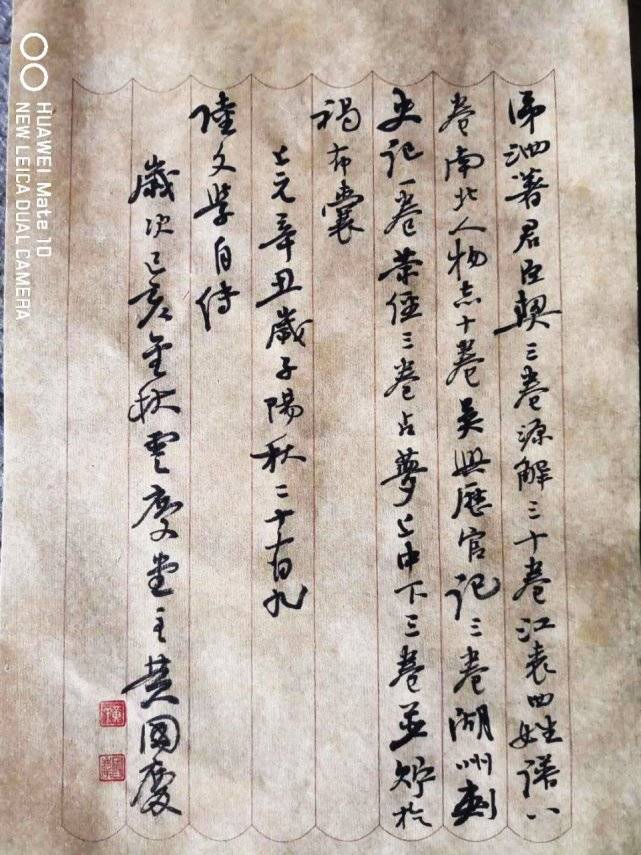 涕泗著君臣契三卷源解三十卷江表四姓譜八
卷南北人物志十卷吳興歷官記三卷湖州刺
史記一卷茶經三卷占夢上中下三卷並貯於
褐布囊
上元辛丑歲子陽秋二十有九
陸文學自傳
歲次己亥金秋雲慶堂主黃國慶
HUAWEI Mate 10
NEW LEICA DUAL CAMERA